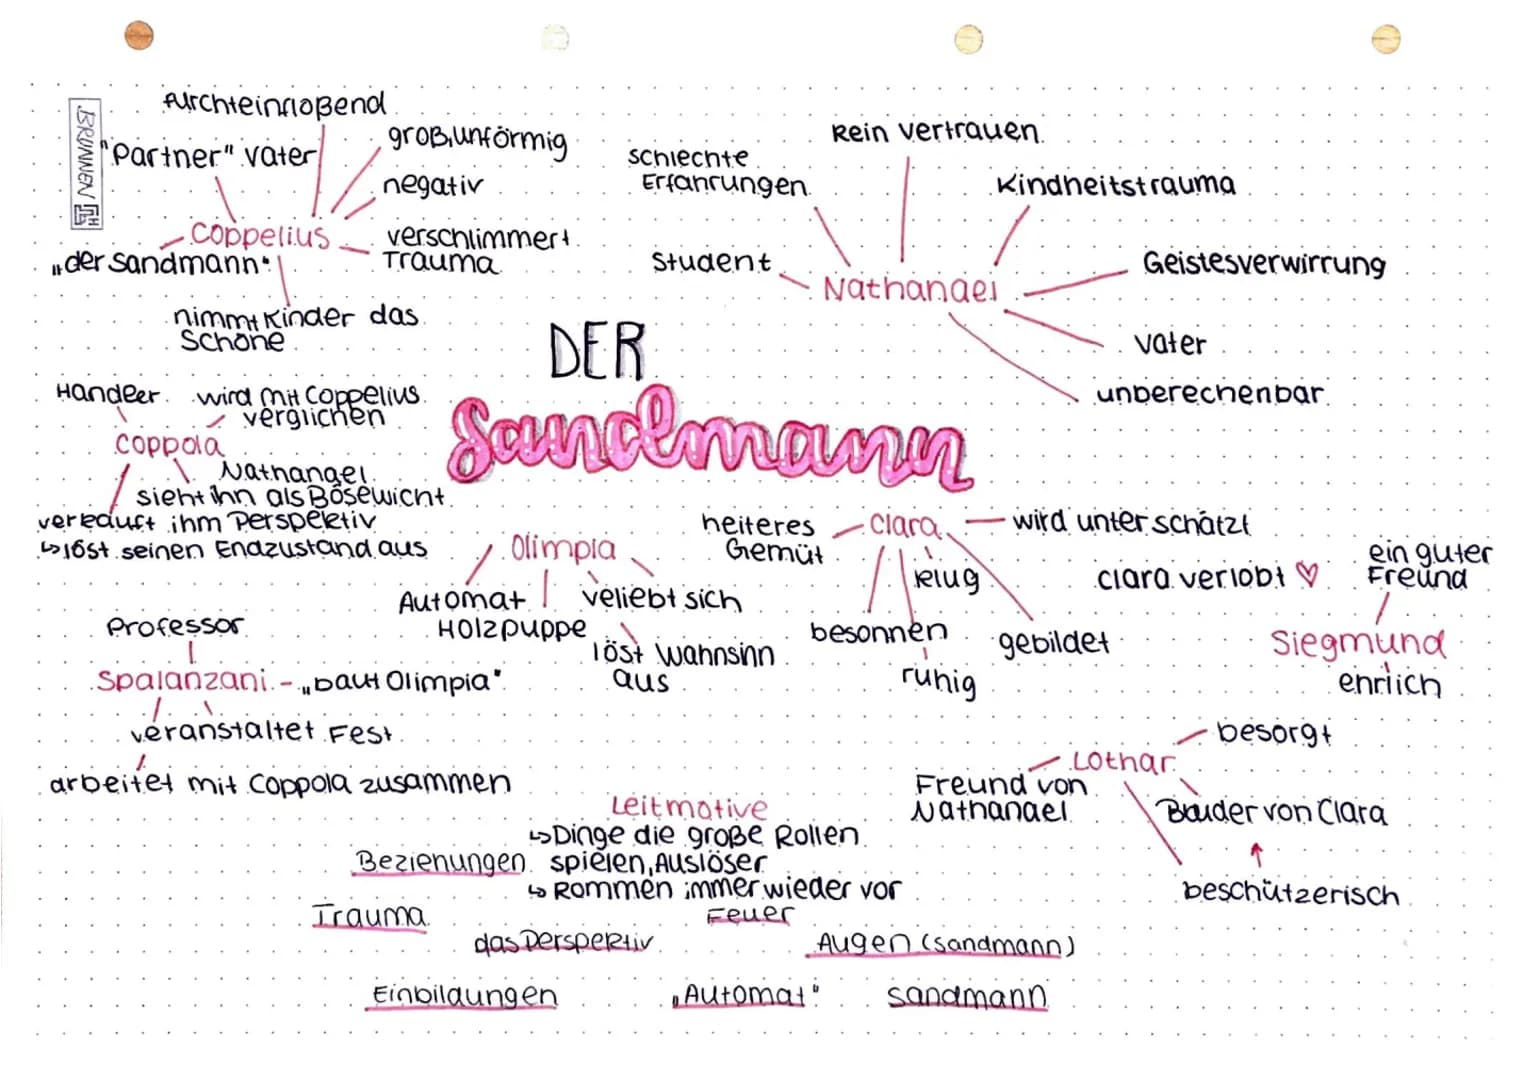 BRUNNEN
furchteinflößend
"Partner" Vater
groß, unförmig
negativ
Coppelius
verschlimmert
Trauma
„der Sandmann"
nimmt Kinder das
Schöne
schlechte
Erfahrungen
Kein Vertrauen
Kindheitstrauma
Student
Nathanael
Geistesverwirrung
Vater
unberechenbar
DER
Sandmann
Händler
wird mit Coppelius
verglichen
Coppola
Nathanael
sieht ihn als Bösewicht
verkauft ihm Perspektiv
↳ löst seinen Endzustand aus
Olimpia
Automat
Holzpuppe
veliebt sich
löst Wahnsinn
aus
heiteres
Gemüt
Clara
wird unterschätzt
klug
besonnen
ruhig
gebildet
Clara verlobt ♡
ein guter
Freund
Siegmund
ehrlich
Professor
Spalanzani
„baut Olimpia"
veranstaltet Fest
arbeitet mit Coppola zusammen
besorgt
Lothar
Freund von
Nathanael
Bruder von Clara
beschützerisch
Leitmotive
↳ Dinge die große Rollen
spielen, Auslöser
↳ kommen immer wieder vor
Beziehungen
Trauma
Feuer
das Perspektiv
Augen (Sandmann)
Einbildungen
„Automat"
Sandmann